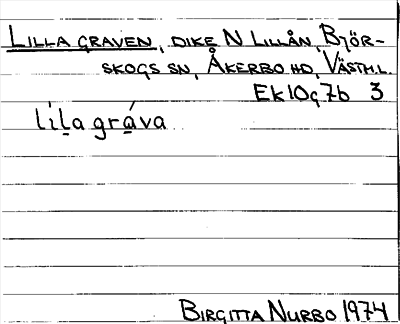 LILLA GRAVEN, DIKE N LILLÅN, BJÖR-
SKOGS SN, ÅKERBO HD, VÄSTM.L.
Ek10g7b 3
lịḷa grạ́va
BIRGITTA NURBO 1974